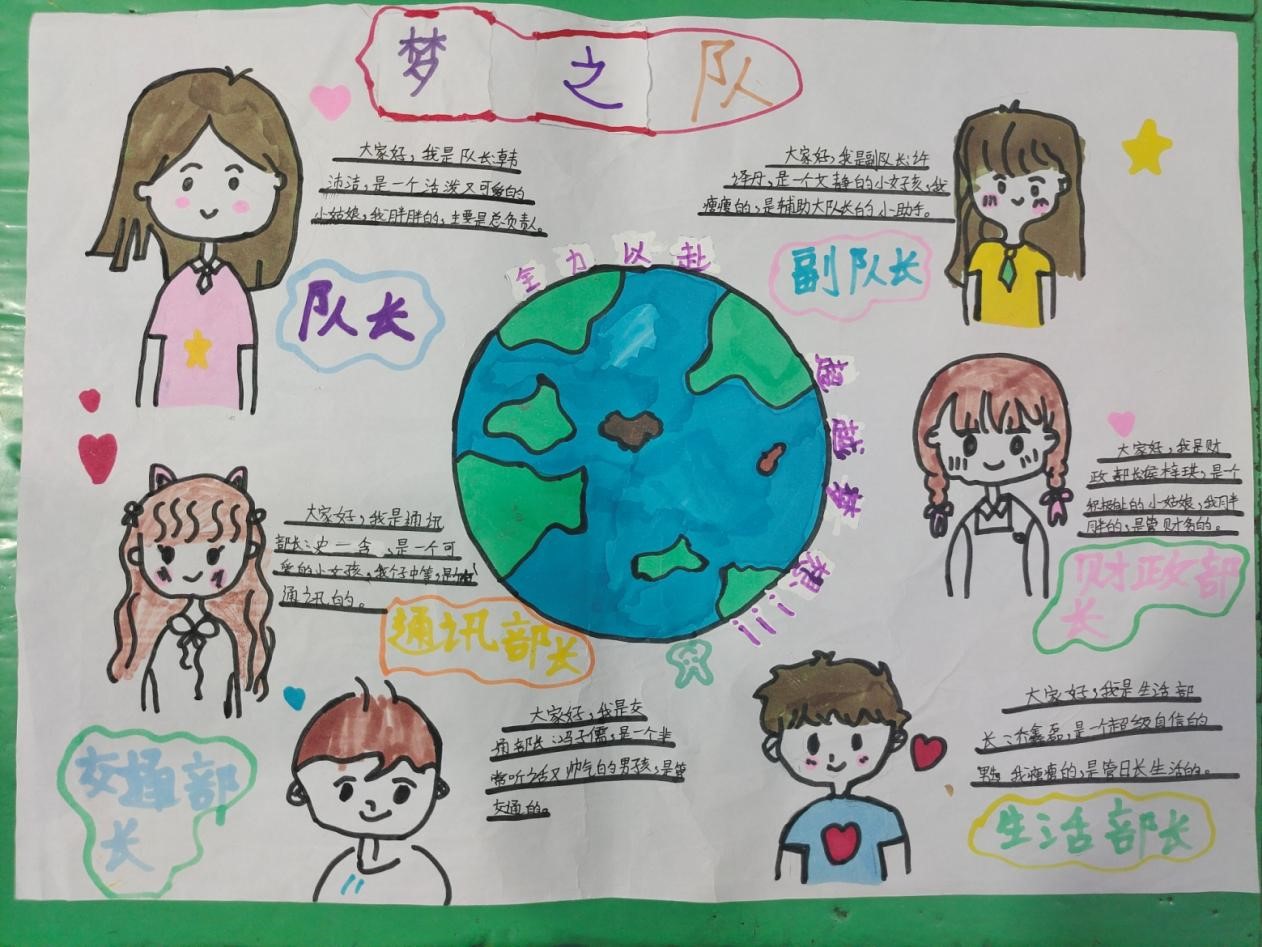 梦之队
大家好,我是队长:韩
沛洁,是一个活泼又可爱的
小姑娘,我胖胖的,主要是总负责人。
队长
大家好,我是副队长:许
译丹,是一个文静的小女孩,我
瘦瘦的,是辅助大队长的小助手。
副队长
全力以赴
超越梦想!!!
大家好,我是通讯
部长:史一含,是一个可
爱的小女孩,我个子中等,是
通讯的。
通讯部长
大家好,我是财
政部长侯梓琪,是一个
的小姑娘,我胖
胖的,是管财务的。
财政部长
大家好,我是交
通部长:冯子儒,是一个非
常听话又帅气的男孩,是管
交通的。
交通部长
大家好,我是生活部
长:鑫磊,是一个超级自信的
男 我瘦瘦的,是管日长生活的。
生活部长